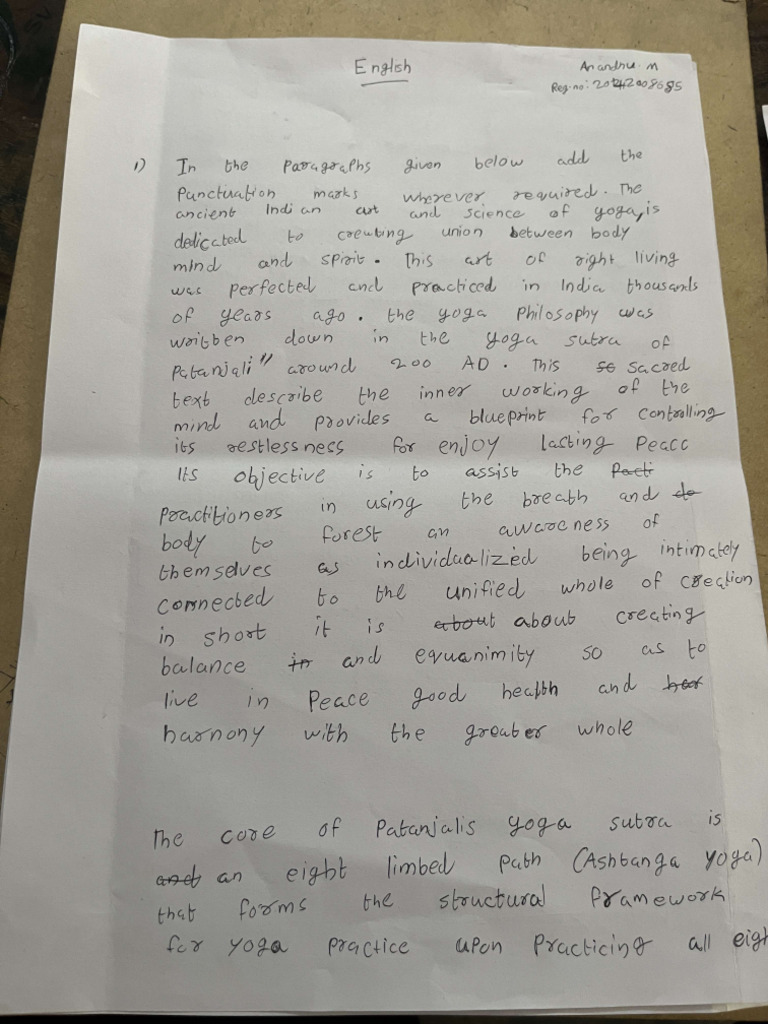 English
Anandhu. M
Reg.no:
1) In the Paragraphs given below add the
Punctuation marks wherever required. The
ancient Indian art and science of yoga, is
dedicated to creating union between body
mind and spirit. This art of right living
was perfected and practiced in India thousands
of years ago. the yoga Philosophy was
written down in the yoga sutra of
Patanjali" around 200 AD. This sacred
text describe the inner working of the
mind and provides a blueprint for controlling
its restlessness for enjoy lasting Peace
Its objective is to assist the
Practitioners in using the breath and
body to forest an awareness of
themselves as individualized being intimately
connected to the unified whole of creation
in short it is about about creating
balance in and equanimity so as to
live in Peace good health and
harnony with the greater whole
The core of Patanjalis yoga sutra is
and an eight limbed Path (Ashtanga yoga)
that forms the structural framework
for yoga Practice upon Practicing all eigh